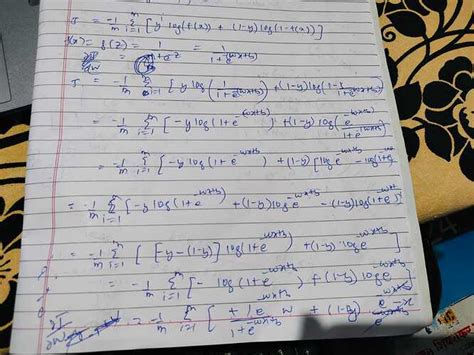 J = -1/m Σ_{i=1}^{m} [y^i log(f(x)) + (1-y) log(1-f(x))]
f(x) = g(z) = 1/(1+e^{-z}) = 1/(1+e^{-wx+b})
∂J/∂w =
J = -1/m Σ_{i=1}^{m} [y log(1/(1+e^{-wx+b})) + (1-y) log(1-1/(1+e^{-wx+b}))]
= -1/m Σ_{i=1}^{m} [-y log(1+e^{-wx+b}) + (1-y) log(e^{-wx+b}/(1+e^{-wx+b}))]
= -1/m Σ_{i=1}^{m} [-y log(1+e^{-wx+b}) + (1-y) [log e^{-wx+b} - log(1+e
= -1/m Σ_{i=1}^{m} [-y log(1+e^{-wx+b}) + (1-y) log e^{-wx+b} - (1-y) log(1+e
= -1/m Σ_{i=1}^{m} [[-y-(1-y)] log(1+e^{-wx+b}) + (1-y) log e^{-wx+b}]
= -1/m Σ_{i=1}^{m} [- log(1+e^{-wx+b}) + (1-y) log e^{-wx+b}]
∂J/∂w = -1/m Σ_{i=1}^{m} [ + (1-y)